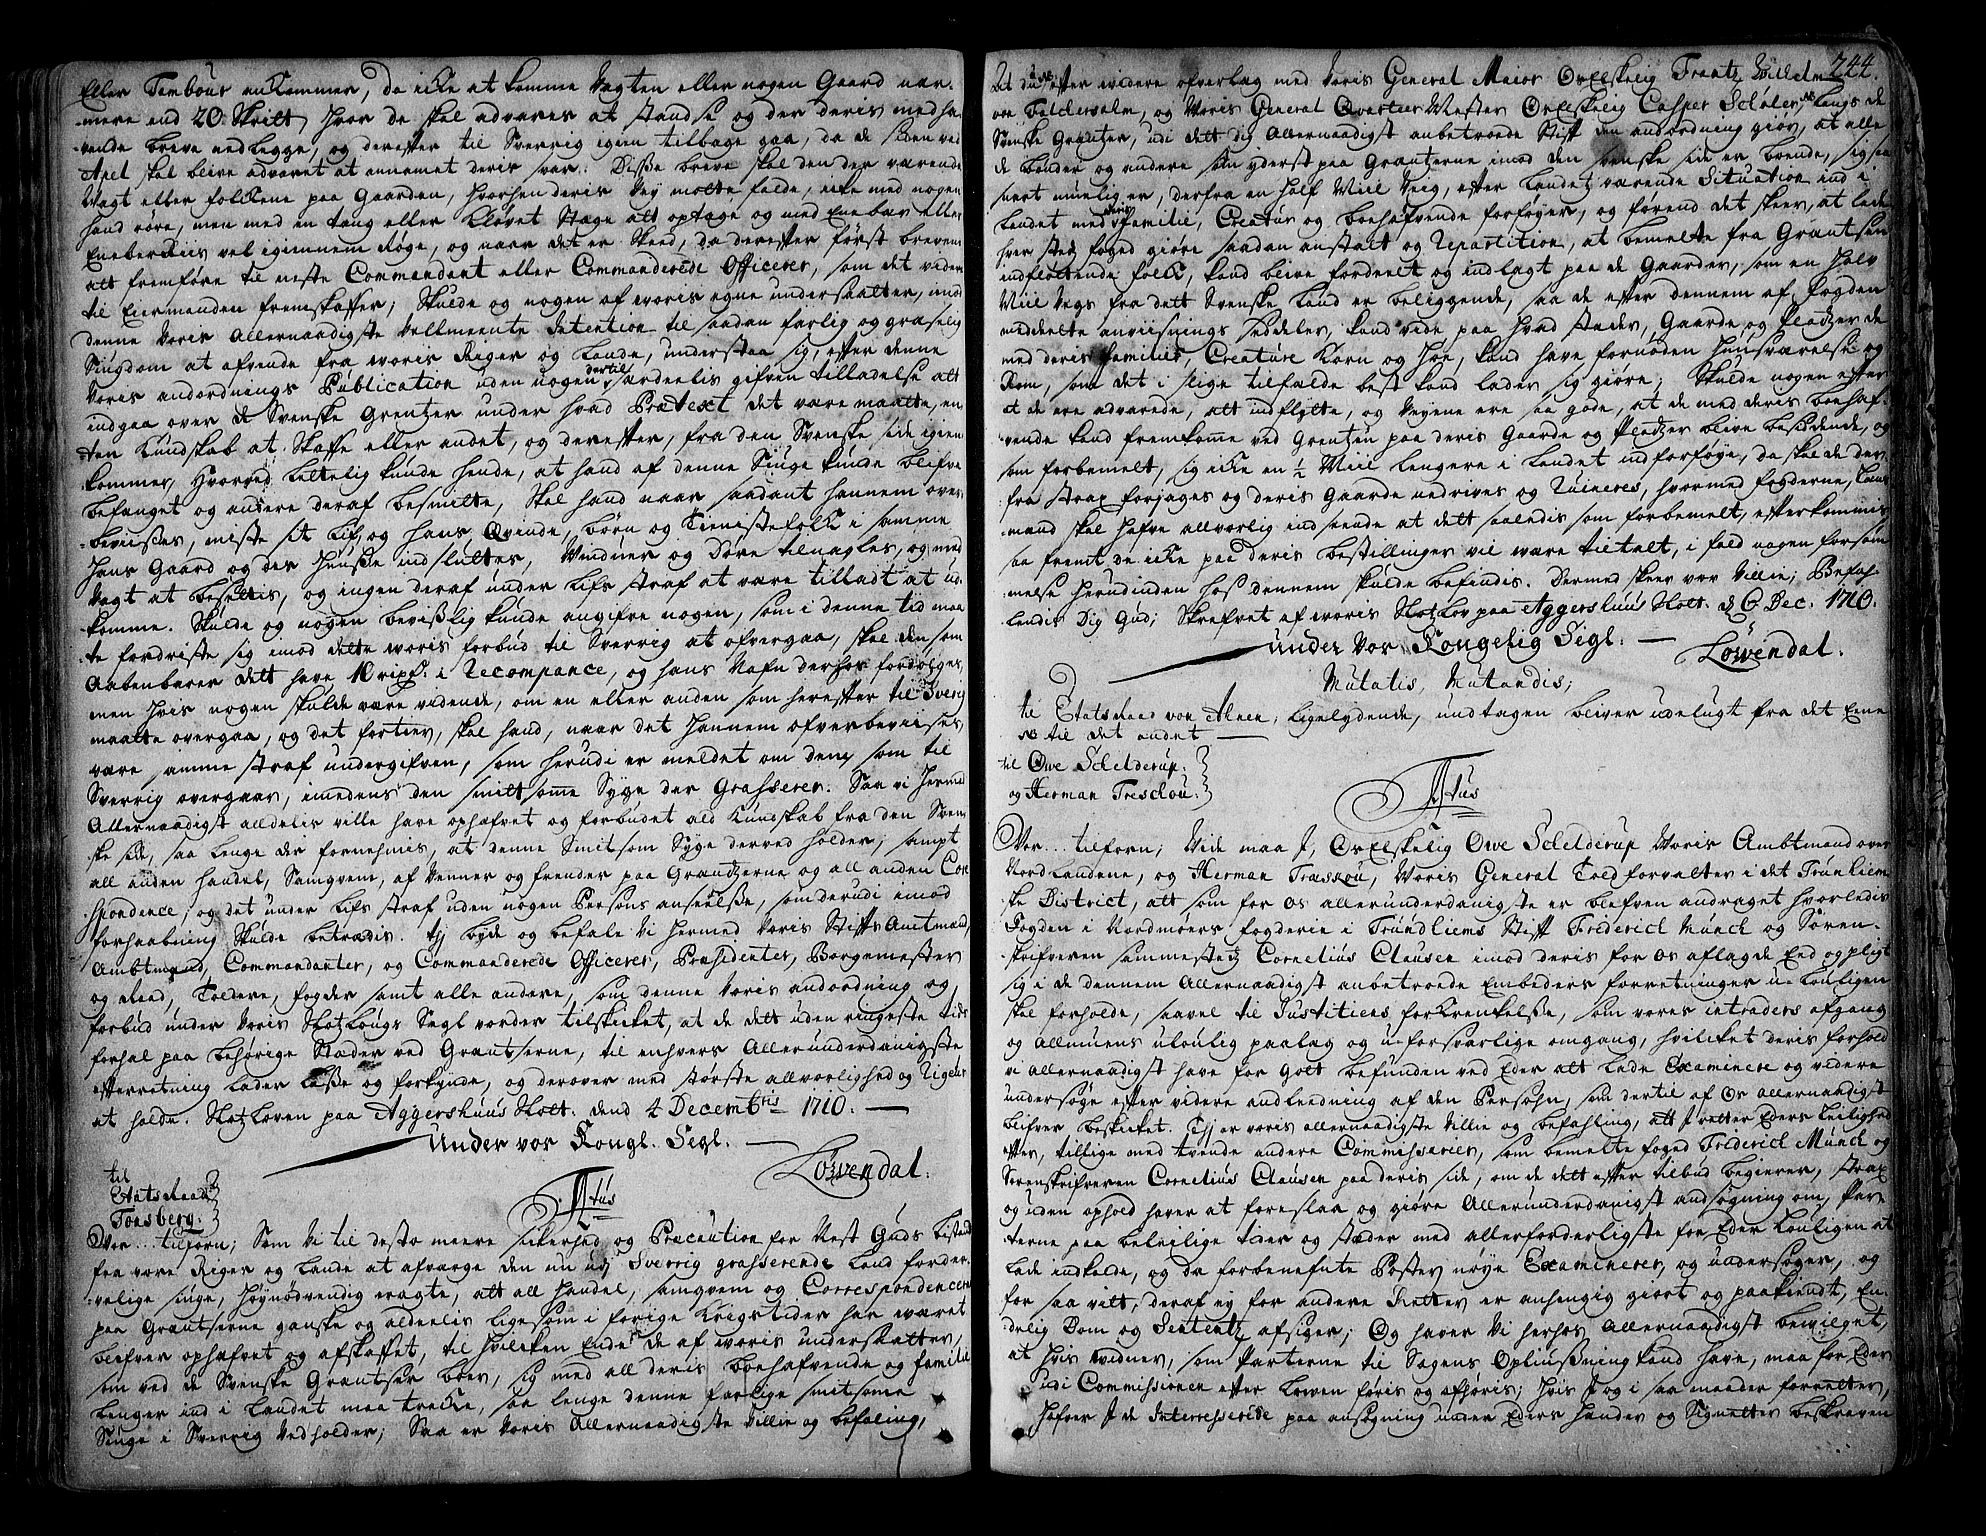 Eller Tambour ankommer, da icke at komme Vagten eller nogen Gaard nær-
-mere end 20. Skrilt, hvor de skal advares at standse og der deris medha-
vende breve nedlegge, og derefter til Sverrig igien tilbage gaa, da de
skal blive advaret at annamet deris svar: Disse breve skal den der værende
Vagt eller folckene paa Gaarden, hvorhen deris Vej motte falde, icke med nogen
haand røre, men med en tang eller kløvet Stage alt optage og med Enebær eller
Eneberriis vel igiennem røge, og naar det er skeed, da derefter først breven
alt fremføre til neste Commandant eller Commanderede Officerer, som det videre
til Eiermanden fremskaffer; Skulde og nogen af woris egne undersaatter, imod
denne Voris Allernaadigste Vellmeente Intention til saadan farlig og græselig
Siugdom at afvende fra woris Riger og Lande, understaa sig, efter denne
Voris anordnings Publication uden nogen dertil særdeelis gifven tilladelse alt
indgaa over de Svenske Grentzer under hvad Prætext det være maatte, en-
ten kundskab at skaffe eller andet, og derefter, fra den Svenske side igien
kommer, hvorved lettelig kunde hende, at hand af denne Siuge kunde blifve
befanget og andre deraf besmitte, skal hand naar saadant hannem over-
-beviises, miste sit Lif, og hans Qvinde, børn og Tienistefolck i samme
hans Gaard og der huusse indsluttes, Vinduer og Døre tilnagles, og med
Vagt at besettis, og ingen deraf under Lifs straf at være tilladt at ud-
komme. Skulde og nogen bevislig kunde angifve nogen, som i denne tid maa-
te fordriste sig imod dette woris forbud til Sverrig at ofvergaa, skal den, som
Aabenbarer dett have 10 rixd: i Recompance, og hans Nafn derhos fordølges,
men hvis nogen skulde være vidende, om en eller anden som herefter til Sverig
maatte overgaa, og det fortier, skal hand, naar det hannem ofverbeviises,
være samme straf undergifven, som herudi er meldet om dem, som til
Sverrig overgaar, imedens den smitsomme Syge der Grasserer. Saa vi hermed
Allernaadigst alldelis ville have ophæfvet og forbudet ald kundskab fra den Sven-
ske side, saa lenge der fornehmis, at denne Smitsom Syge derved holder; sampt
all anden handel, Samqvem, af Venner og frender paa Grendtzerne og all anden Corre-
spondence; og det under Lifs straf uden nogen Persons anseelse, som derudi imod
forhaabning skulde betrædis. Thj byde og befale Vi hermed Voris Stifts Amtmand,
Ambtmænd, Commandanter, og Commanderede Officerer, Præsidenter, Borgemester
og Raad, Toldere, fogder samt alle andere, som denne Voris anordning og
forbud under Voris Slotzlougs Segl vorder tilskicket, at de dett uden ringeste tids
forhal paa behørige Stæder ved Grentserne, til enhvers Allerunderdanigste
efterretning lader læsse og forkynde, og derover med største allvorlighed og Rigeur
at holde. Slotzloven paa Aggershuus Slott. dend 4 Decembris 1710. —
Under vor Kongl. Segl. —
Løwendal.
til
Etatsraad
Tonsberg.
Titus
Vor... tilforn; Som Vi til desto meere sickerhed og Præcaution for Nest Guds bistand
fra vore Riger og Lande at afværge den nu udj Sverrig grasserende Land forder-
velige siuge, høynødvendig eragte, att all handel, samqvem og Correspondencer
paa Grentserne ganske og aldeelis ligesom i forige krigstider har wæret
blifver ophæfvet og afskaffet, til hvilcken Ende de af woris undersaatter,
som ved de Svenske Grentser boer, sig med all deris boehafvende og familie
lenger ind i landet maa trecke, saa lenge denne farlige smitsomme
Siuge i Sverrig vedholder; Saa er Voris Allernaadigste Villie og befaling,
244.
At du efter videre ofverlag med Voris General Major Velskelig Frantz Wilhelm
von Feldersalm, og Voris General Qvarteer Mester Velskelig Casper Schøler langs de
Svenske Grentzer, udi dett dig Allernaadigst anbetroede Stift den anordning giør, at alle
de bønder og andere som yderst paa Grentzerne imod den svenske side er boende, sig saa
snart mueligt er, derfra en half Miil Veig, efter landets værende Situation ind i
landet med deris Familie, Creatur og boehafvende forføyer, og forend det skeer, at lade
hver sted foged giøre saadan anstalt og Repartition, at bemelte fra Grentsen
indfløttende folck, kand blive fordeelt og indlagt paa de Gaarder, som en halv
Miil Veys fra dett Svenske land er beliggende, saa de efter dennem af fogden
meddeelte anviisnings seddeler, kand vide paa hvad stæder, Gaarde og Pladtzer de
med deris familier, Creature korn og høe, kand have fornøden huusværelse og
Rom, som det i slige tilfælde best kand lader sig giøre; Skulde nogen efter
at de ere advarede, alt indflytte, og Veyene ere saa gode, at de med deris boehaf-
vende kand fremkomme ved Grentzen paa deris Gaarde og Pladtzer blive besidende, og
som forbemelt, sig icke en ½ Miil lengere i landet indforføye, da skal de der-
fra strax forjages og deris Gaarde nedrives og Ruineres, hvormed fogderne, Lens-
mænd skal hafve allvorlig indseende at dett saaledis som forbemelt, efterkommis
saa fremt de icke paa deris bestillinger vil være tiltalt, i fald nogen forsøm-
melse herudinden hos dennem skulde befindis. Dermed skeer vor Villie; Befal-
landis Dig Gud; Skrefvet af woris Slotzlov paa Aggershuus Slott. d 6 Dec. 1710.
Under Vor Kongelig Segl. —
Løwendal.
Mutatis, Mutandis;
til Etatsraad von Ahnen, ligelydende, undtagen bliver udelugt fra det Eene
NB til det andet —
til Owe Schelderup.
og Herman Treschou.
Titus
Vor... tilforn; Vide maa I, Os Elskelig Owe Schelderup Woris Ambtmand over
Nordlandene, og Herman Træskou, Voris General Toldforvalter i det Trundhiem-
ske District, att som for os allerunderdanigste er blefven andraget hvorledis
Fogden i Nordmøers fogderie i Trundhiems Stift Frederich Münch og Soren-
skrifveren sammestetz Cornelius Clausen imod deris for os aflagde Eed og pligt
sig i de dennem Allernaadigst anbetroede Embeders forretninger u-louligen
skal forholde, saavel til Justitiens forkrenkelsse, som vores intraders afgang
og Allmuens ulovlig paalag og u-forsvarlige omgang, hvilcket deris forhold
vi allernaadigst have for Gott befunden ved Eder att lade Examinere og videre
undersøge efter videre anleedning af den Persohn, som dertil af Os allernaadigst
blifver beskicket. Thj er voris allernaadigste Villie og befahling, att I retter Eders leilighed
efter, tillige med tvende andere Commissarier, som bemelte foged Frederich Münch og
Sorenskrifveren Cornelius Clausen paa deris side, om de dett efter tilbud begierer, strax
og uden ophold haver at foreslaa og giøre Allerunderdanigst andsøgning om, Par-
terne paa beleilige tider og stæder med allerforderligste for Eder Louligen at
lade indkalde, og da forbenefnte Poster nøye Examinerer, og undersøger, og
for saa vilt, deraf ej for andere Retter er anhengig giort og paakiendt, En-
delig Dom og Sententz afsiger; Og haver Vi herhos Allernaadigst bevilget,
at hvis widner, som Parterne til Sagens Opliussning kand have, maa for Eder
udi Commissionen efter Lowen føris og afhøris; hvis I og i saa maader forretter,
hafver I de Interresserede paa ansøgning under Eders hænder og Signetter beskreven